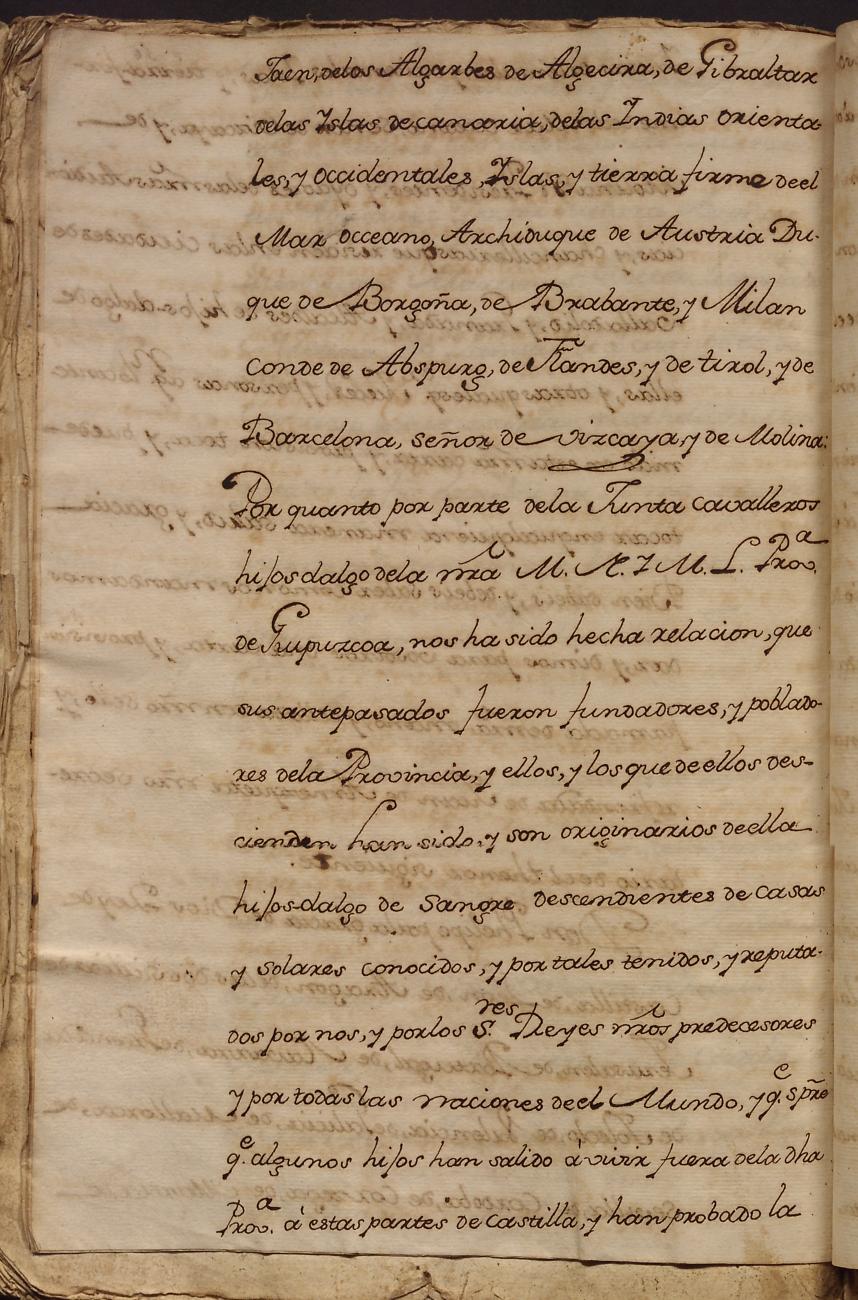 Jaen, delos Algarbes de Algecira, de Gibraltar
delas Yslas de canaria, delas Indias orienta-
les, y occidentales, Yslas, y tierra firme deel
Mar occeano, Archiduque de Austria Du-
que de Borgoña, de Brabante, y Milan
conde de Abspurg, de Flandes, y de tirol, y de
Barcelona, señor de vizcaya, y de Molina:
Por quanto por parte dela Junta cavalleros
hijosdalgo dela nrã M. N. Y M. L. Prov.ª
de Guipuzcoa, nos ha sido hecha relacion, que
sus antepasados fueron fundadores, y poblado-
res dela Provincia, y ellos, y los que de ellos des-
cienden han sido, y son originarios de ella
hijos-dalgo de Sangre descendientes de casas
y solares conocidos, y por tales tenidos, y reputa-
dos por nos, y por los S.res Reyes nrõs predecesores
y por todas las naciones deel Mundo, y q.e spre
q.e algunos hijos han salido à vivir fuera dela dha
Prov.a à estas partes de castilla, y han probado la